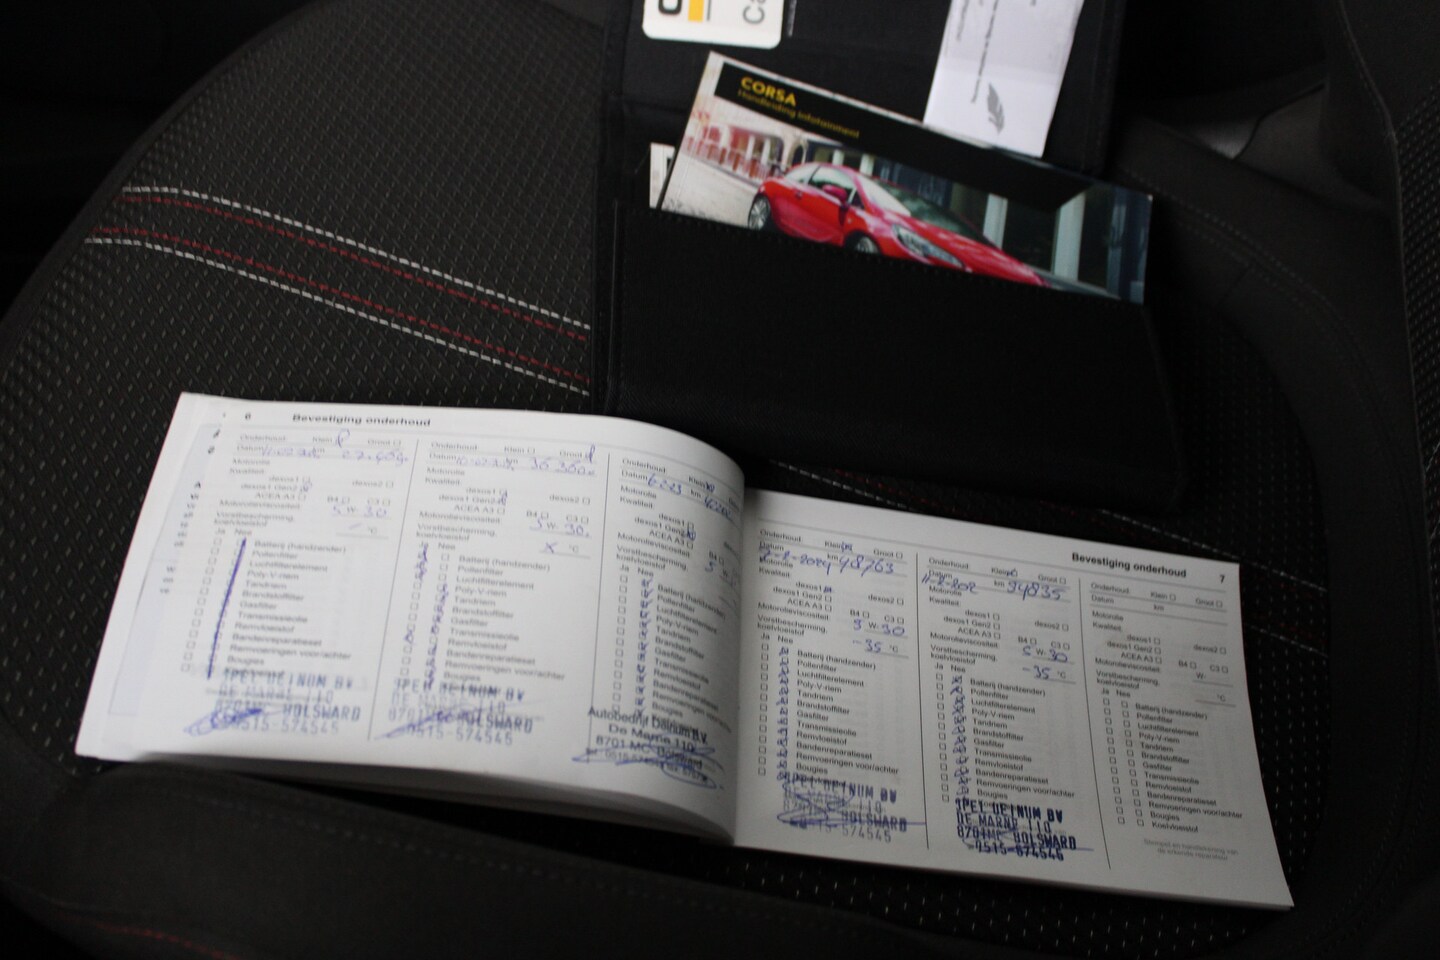 CORSA
Handleiding Infotainment
6 Bevestiging onderhoud
Onderhoud: Klein Groot
Datum km
Motorolie
Kwaliteit:
dexos1 dexos2
dexos1 Gen2
ACEA A3 B4 C3
Motorolieviscositeit: 5 W- 30
Vorstbescherming,
koelvloeistof °C
Ja Nee
Batterij (handzender)
Pollenfilter
Luchtfilterelement
Poly-V-riem
Tandriem
Brandstoffilter
Gasfilter
Transmissieolie
Remvloeistof
Bandenreparatieset
Remvoeringen voor/achter
Bougies
OPEL DEINUM BV
DE MARNE 110
8701MC BOLSWARD
0515-574545
Onderhoud: Klein Groot
Datum km 36 360
Motorolie
Kwaliteit:
dexos1 dexos2
dexos1 Gen2
ACEA A3 B4 C3
Motorolieviscositeit: 5 W- 30
Vorstbescherming,
koelvloeistof X °C
Ja Nee
Batterij (handzender)
Pollenfilter
Luchtfilterelement
Poly-V-riem
Tandriem
Brandstoffilter
Gasfilter
Transmissieolie
Remvloeistof
Bandenreparatieset
Remvoeringen voor/achter
Bougies
OPEL DEINUM BV
DE MARNE 110
8701MC BOLSWARD
0515-574545
Onderhoud: Klein
Datum km
Motorolie
Kwaliteit:
dexos1
dexos1 Gen2
ACEA A3
Motorolieviscositeit:
Vorstbescherming,
koelvloeistof
Ja Nee
Batterij (handzender)
Pollenfilter
Luchtfilterelement
Poly-V-riem
Tandriem
Brandstoffilter
Gasfilter
Transmissieolie
Remvloeistof
Bandenreparatieset
Remvoeringen
Bougies
Autobedrijf Deinum B.V.
De Marne 110
8701 MC Bolsward
Bevestiging onderhoud 7
Onderhoud: Klein Groot
Datum km
2-2-2024 48763
Motorolie
Kwaliteit:
dexos1
dexos1 Gen2 dexos2
ACEA A3 B4 C3
Motorolieviscositeit: 5 W- 30
Vorstbescherming,
koelvloeistof -35 °C
Ja Nee
Batterij (handzender)
Pollenfilter
Luchtfilterelement
Poly-V-riem
Tandriem
Brandstoffilter
Gasfilter
Transmissieolie
Remvloeistof
Bandenreparatieset
Remvoeringen voor/achter
Bougies
OPEL DEINUM BV
DE MARNE 110
8701MC BOLSWARD
0515-574545
Onderhoud: Klein Groot
Datum km 54835
Motorolie
Kwaliteit:
dexos1
dexos1 Gen2 dexos2
ACEA A3 B4 C3
Motorolieviscositeit: 5 W- 30
Vorstbescherming,
koelvloeistof -35 °C
Ja Nee
Batterij (handzender)
Pollenfilter
Luchtfilterelement
Poly-V-riem
Tandriem
Brandstoffilter
Gasfilter
Transmissieolie
Remvloeistof
Bandenreparatieset
Remvoeringen voor/achter
Bougies
OPEL DEINUM BV
DE MARNE 110
8701MC BOLSWARD
0515-574545
Onderhoud: Klein Groot
Datum km
Motorolie
Kwaliteit:
dexos1
dexos1 Gen2 dexos2
ACEA A3 B4 C3
Motorolieviscositeit: W-
Vorstbescherming,
koelvloeistof °C
Ja Nee
Batterij (handzender)
Pollenfilter
Luchtfilterelement
Poly-V-riem
Tandriem
Brandstoffilter
Gasfilter
Transmissieolie
Remvloeistof
Bandenreparatieset
Remvoeringen voor/achter
Bougies
Koelvloeistof
Stempel en handtekening van
de erkende reparateur